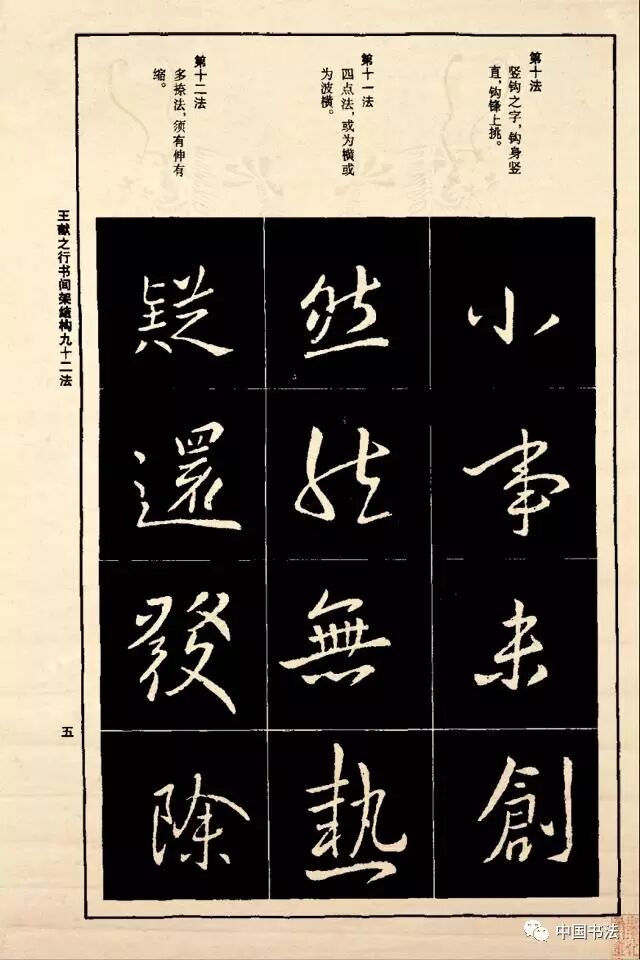 第十法
竖钩之字，钩身竖
直，钩锋上挑。
第十一法
四点法，或为横或
为波横。
第十二法
多捺法，须有伸有
缩。
小事未创
然然無熱
疑還發除
王献之行书间架结构九十二法
五
中国书法